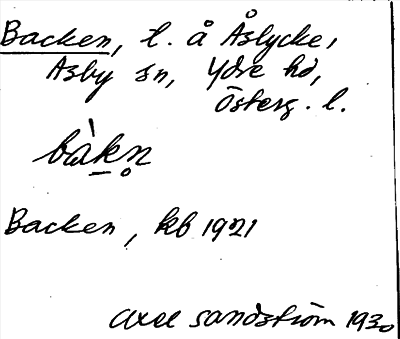 Backen, l. å Åslycke,
Asby sn, Ydre hd,
Österg. l.
bàkn̥
Backen, kb 1921
Axel Sandström 1930